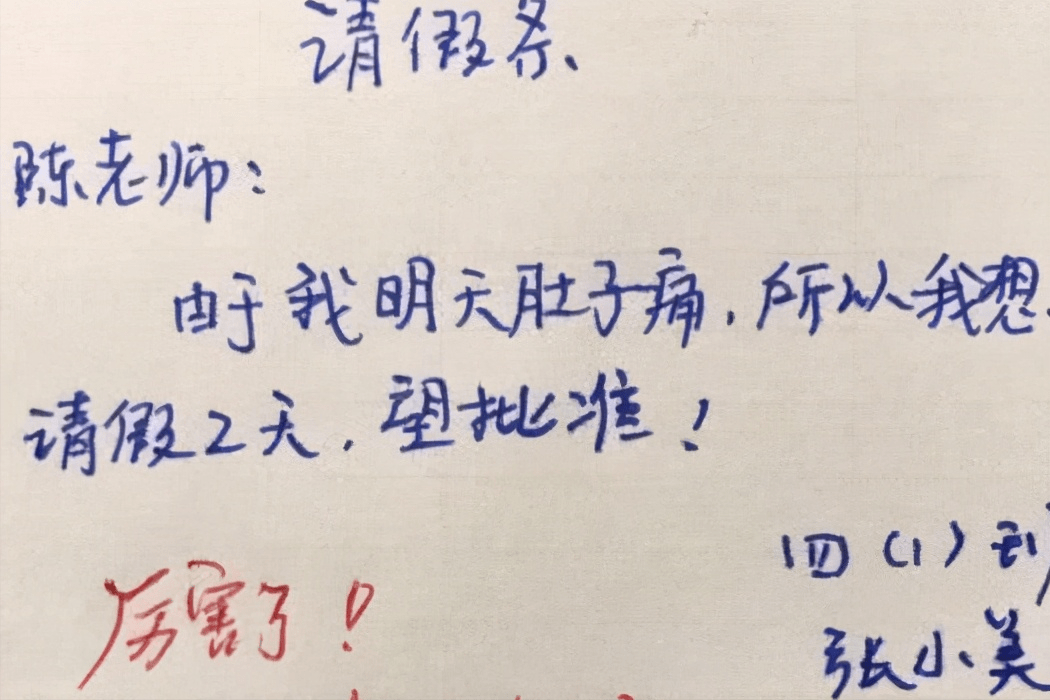 请假条
陈老师：
由于我明天肚子痛，所以我想
请假2天，望批准！
四（1）
张小美
厉害了！